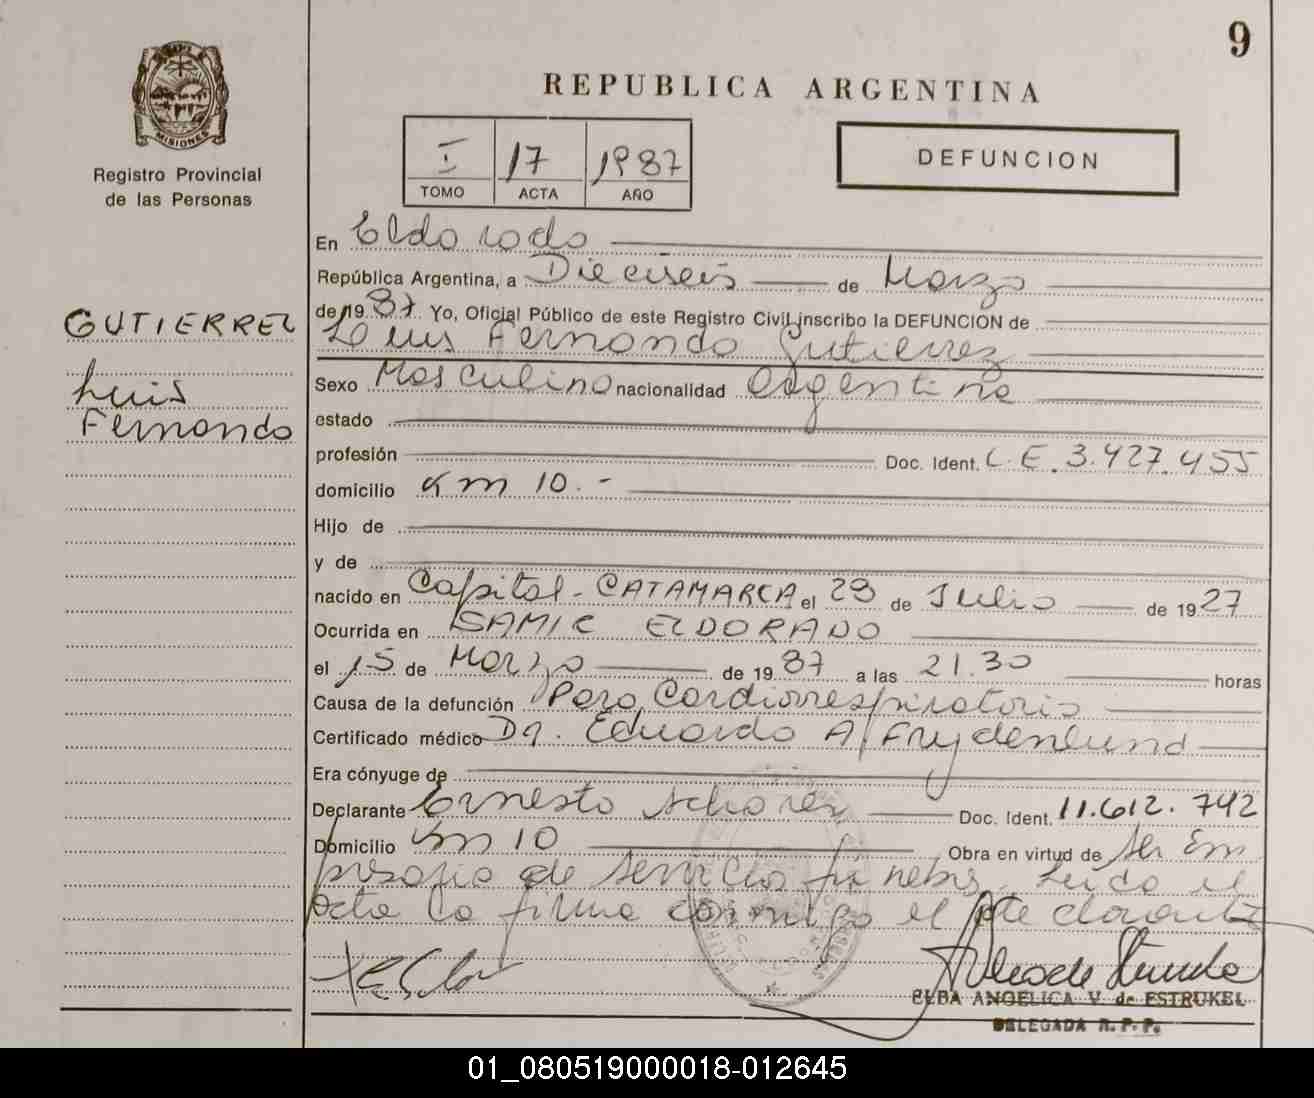 9
MISIONES
Registro Provincial
de las Personas
REPUBLICA ARGENTINA
I 17 1987
TOMO ACTA AÑO
DEFUNCION
GUTIERREZ
Luis
Fernando
En Eldorado
República Argentina, a Dieciseis de Marzo
de 1987 Yo, Oficial Público de este Registro Civil inscribo la DEFUNCION de
Luis Fernando Gutierrez
Sexo Masculino nacionalidad argentina
estado
profesión Doc. Ident. L.E. 3.427.455
domicilio Km 10.-
Hijo de
y de
nacido en Capital - CATAMARCA el 29 de Julio de 1927
Ocurrida en SAMIC ELDORADO
el 15 de Marzo de 1987 a las 21.30 horas
Causa de la defunción Paro Cardiorrespiratorio
Certificado médico Dr. Eduardo A. Frydenlund
Era cónyuge de
Declarante Ernesto Doc. Ident. 11.612.742
Domicilio Km 10 Obra en virtud de ser Em
presario de servicios funebres. Leida el
acta la firma conmigo el declarante
ELBA ANGELICA V. de ESTRUKEL
DELEGADA R. P. P.
01_080519000018-012645